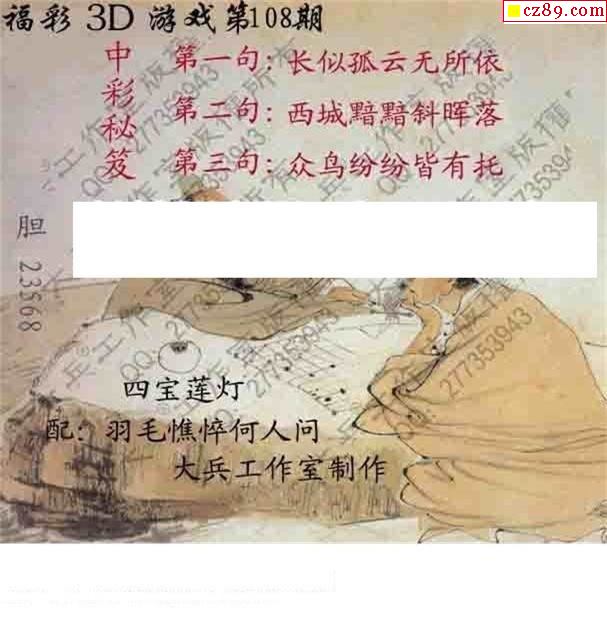 cz89.com
福彩 3D 游戏第108期
中彩秘笈
第一句：长似孤云无所依
第二句：西城黯黯斜晖落
第三句：众鸟纷纷皆有托
胆 23568
四宝莲灯
配：羽毛憔悴何人问
大兵工作室制作
兵®工作室版权所有
QQ:277353943